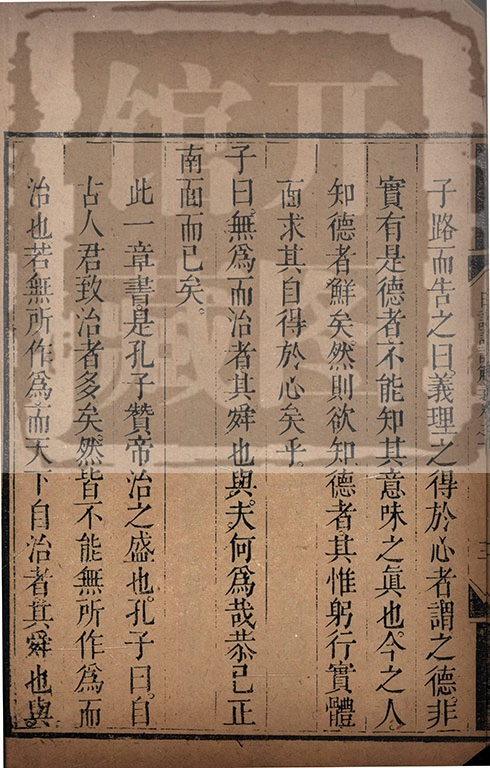 子路而告之曰義理之得於心者謂之德非
實有是德者不能知其意味之眞也今之人
知德者鮮矣然則欲知德者其惟躬行實體
而求其自得於心矣乎
子曰無爲而治者其舜也與夫何爲哉恭己正
南面而已矣
此一章書是孔子贊帝治之盛也孔子曰自
古人君致治者多矣然皆不能無所作爲而
治也若無所作爲而天下自治者其舜也與